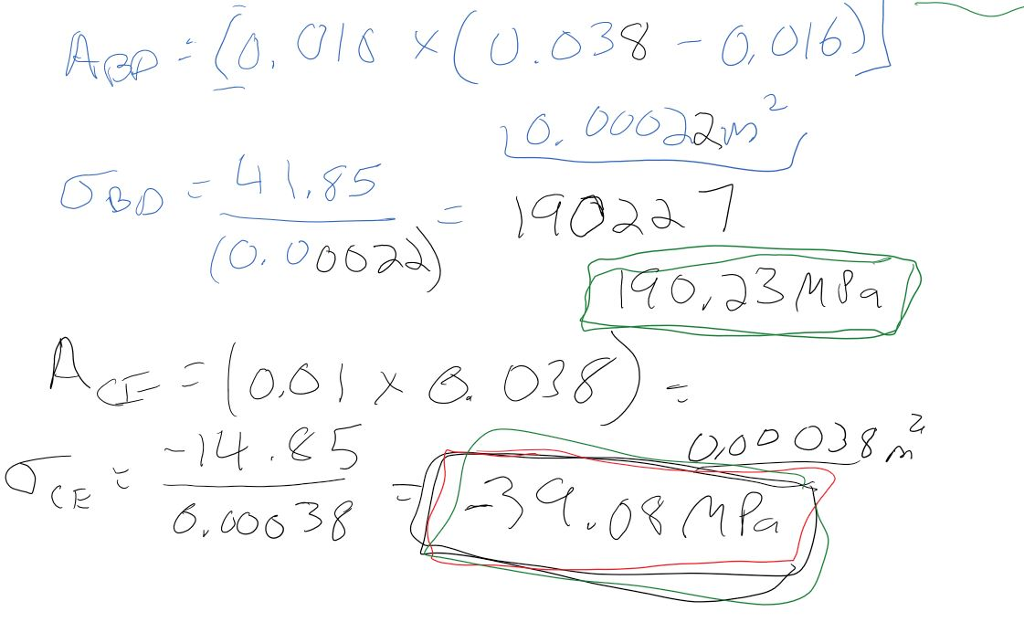 A_BD = [0.010 × (0.038 - 0.016)]
0.00022m²
σ_BD = 41.85 / (0.00022) = 190227
190.23MPa
A_CE = (0.01 × 0.038) =
0.00038m²
σ_CE = -14.85 / 0.00038 = -39.08MPa